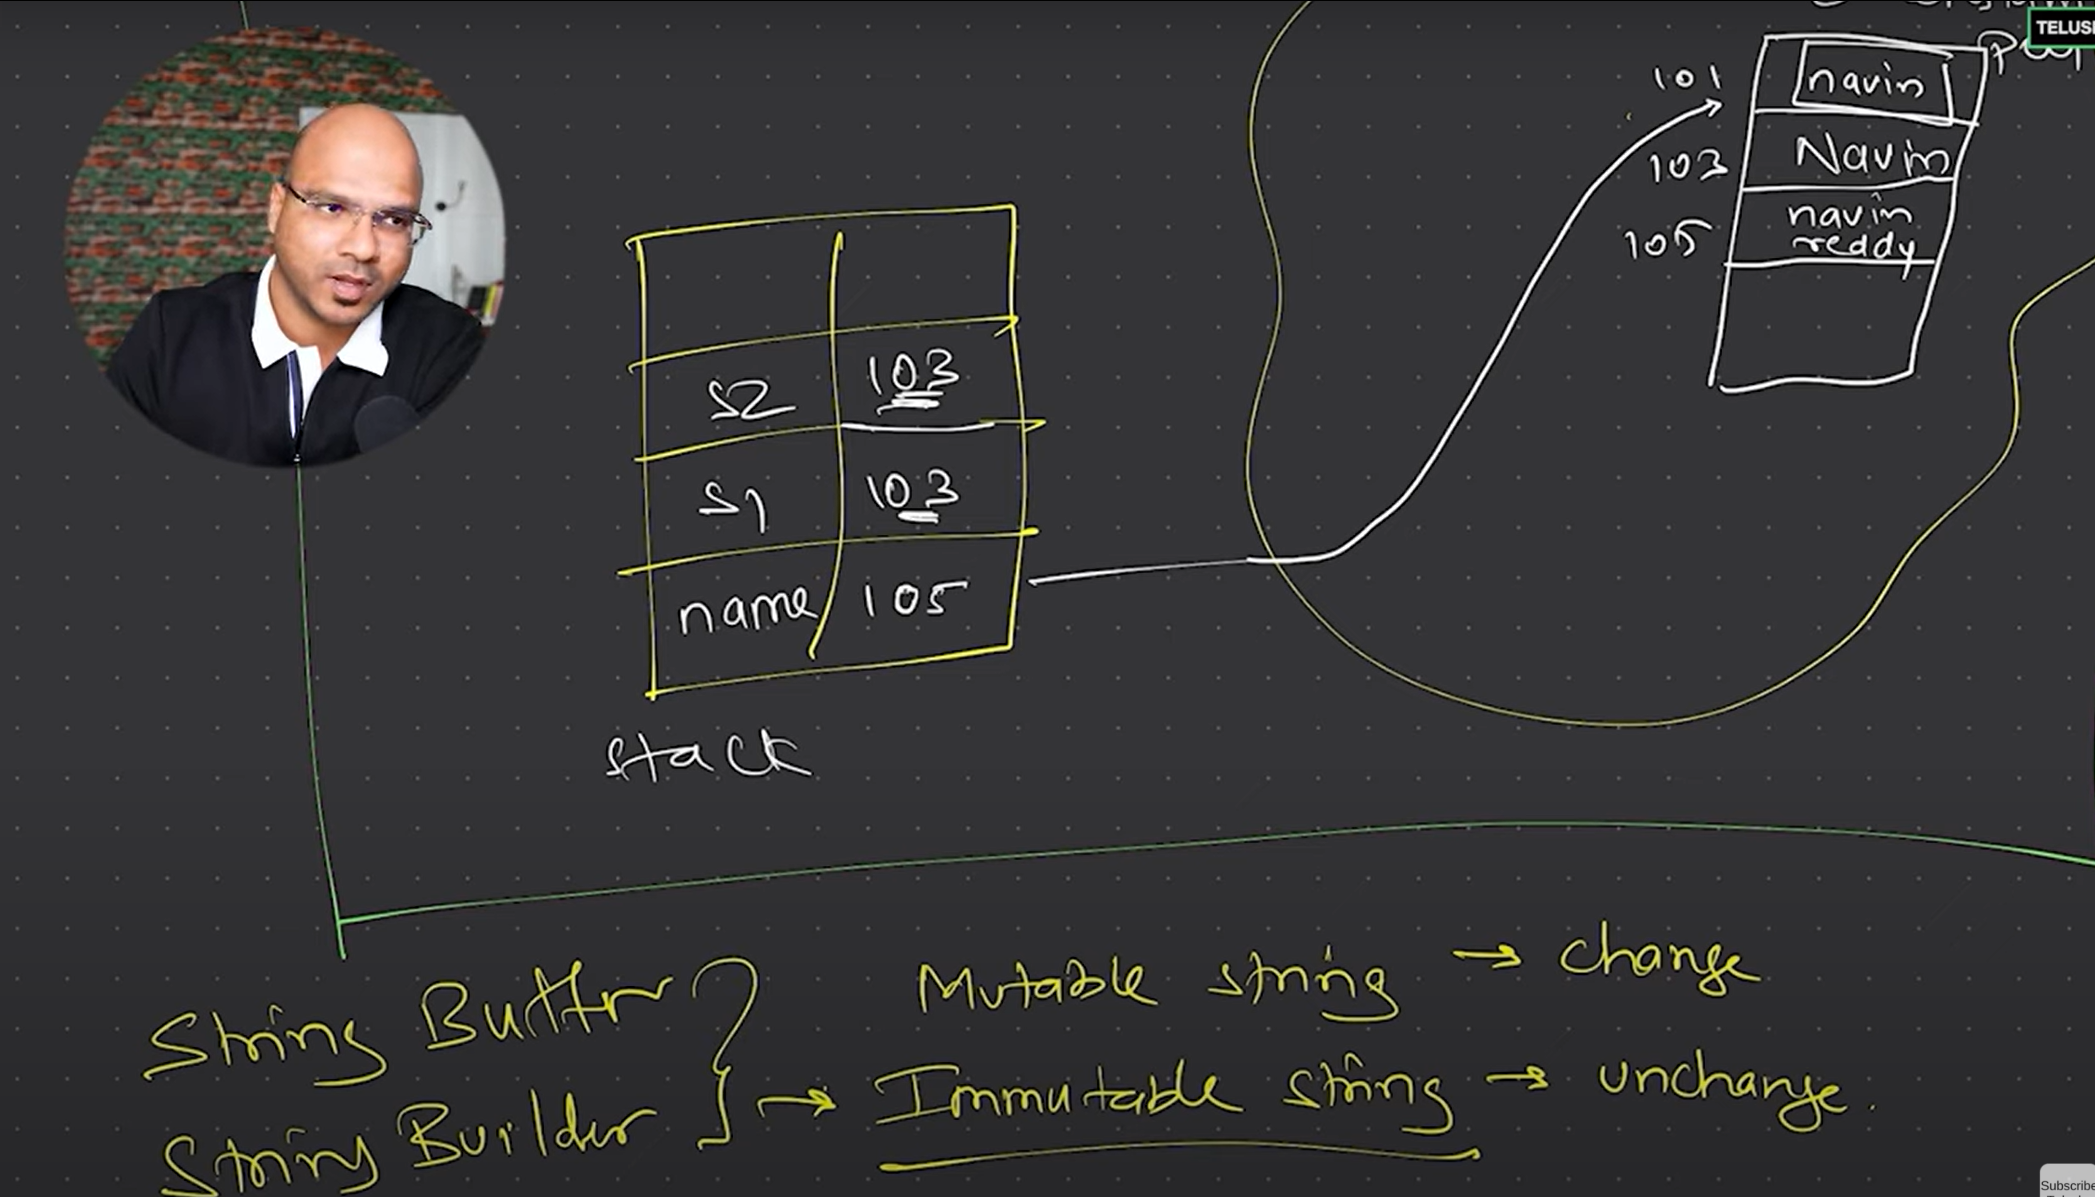 TELUS
101
navin
103
Navin
105
navin
reddy
S2
103
S1
103
name
105
stack
String Buffer
String Builder
Mutable string → change
→ Immutable string → unchange.
Subscribe